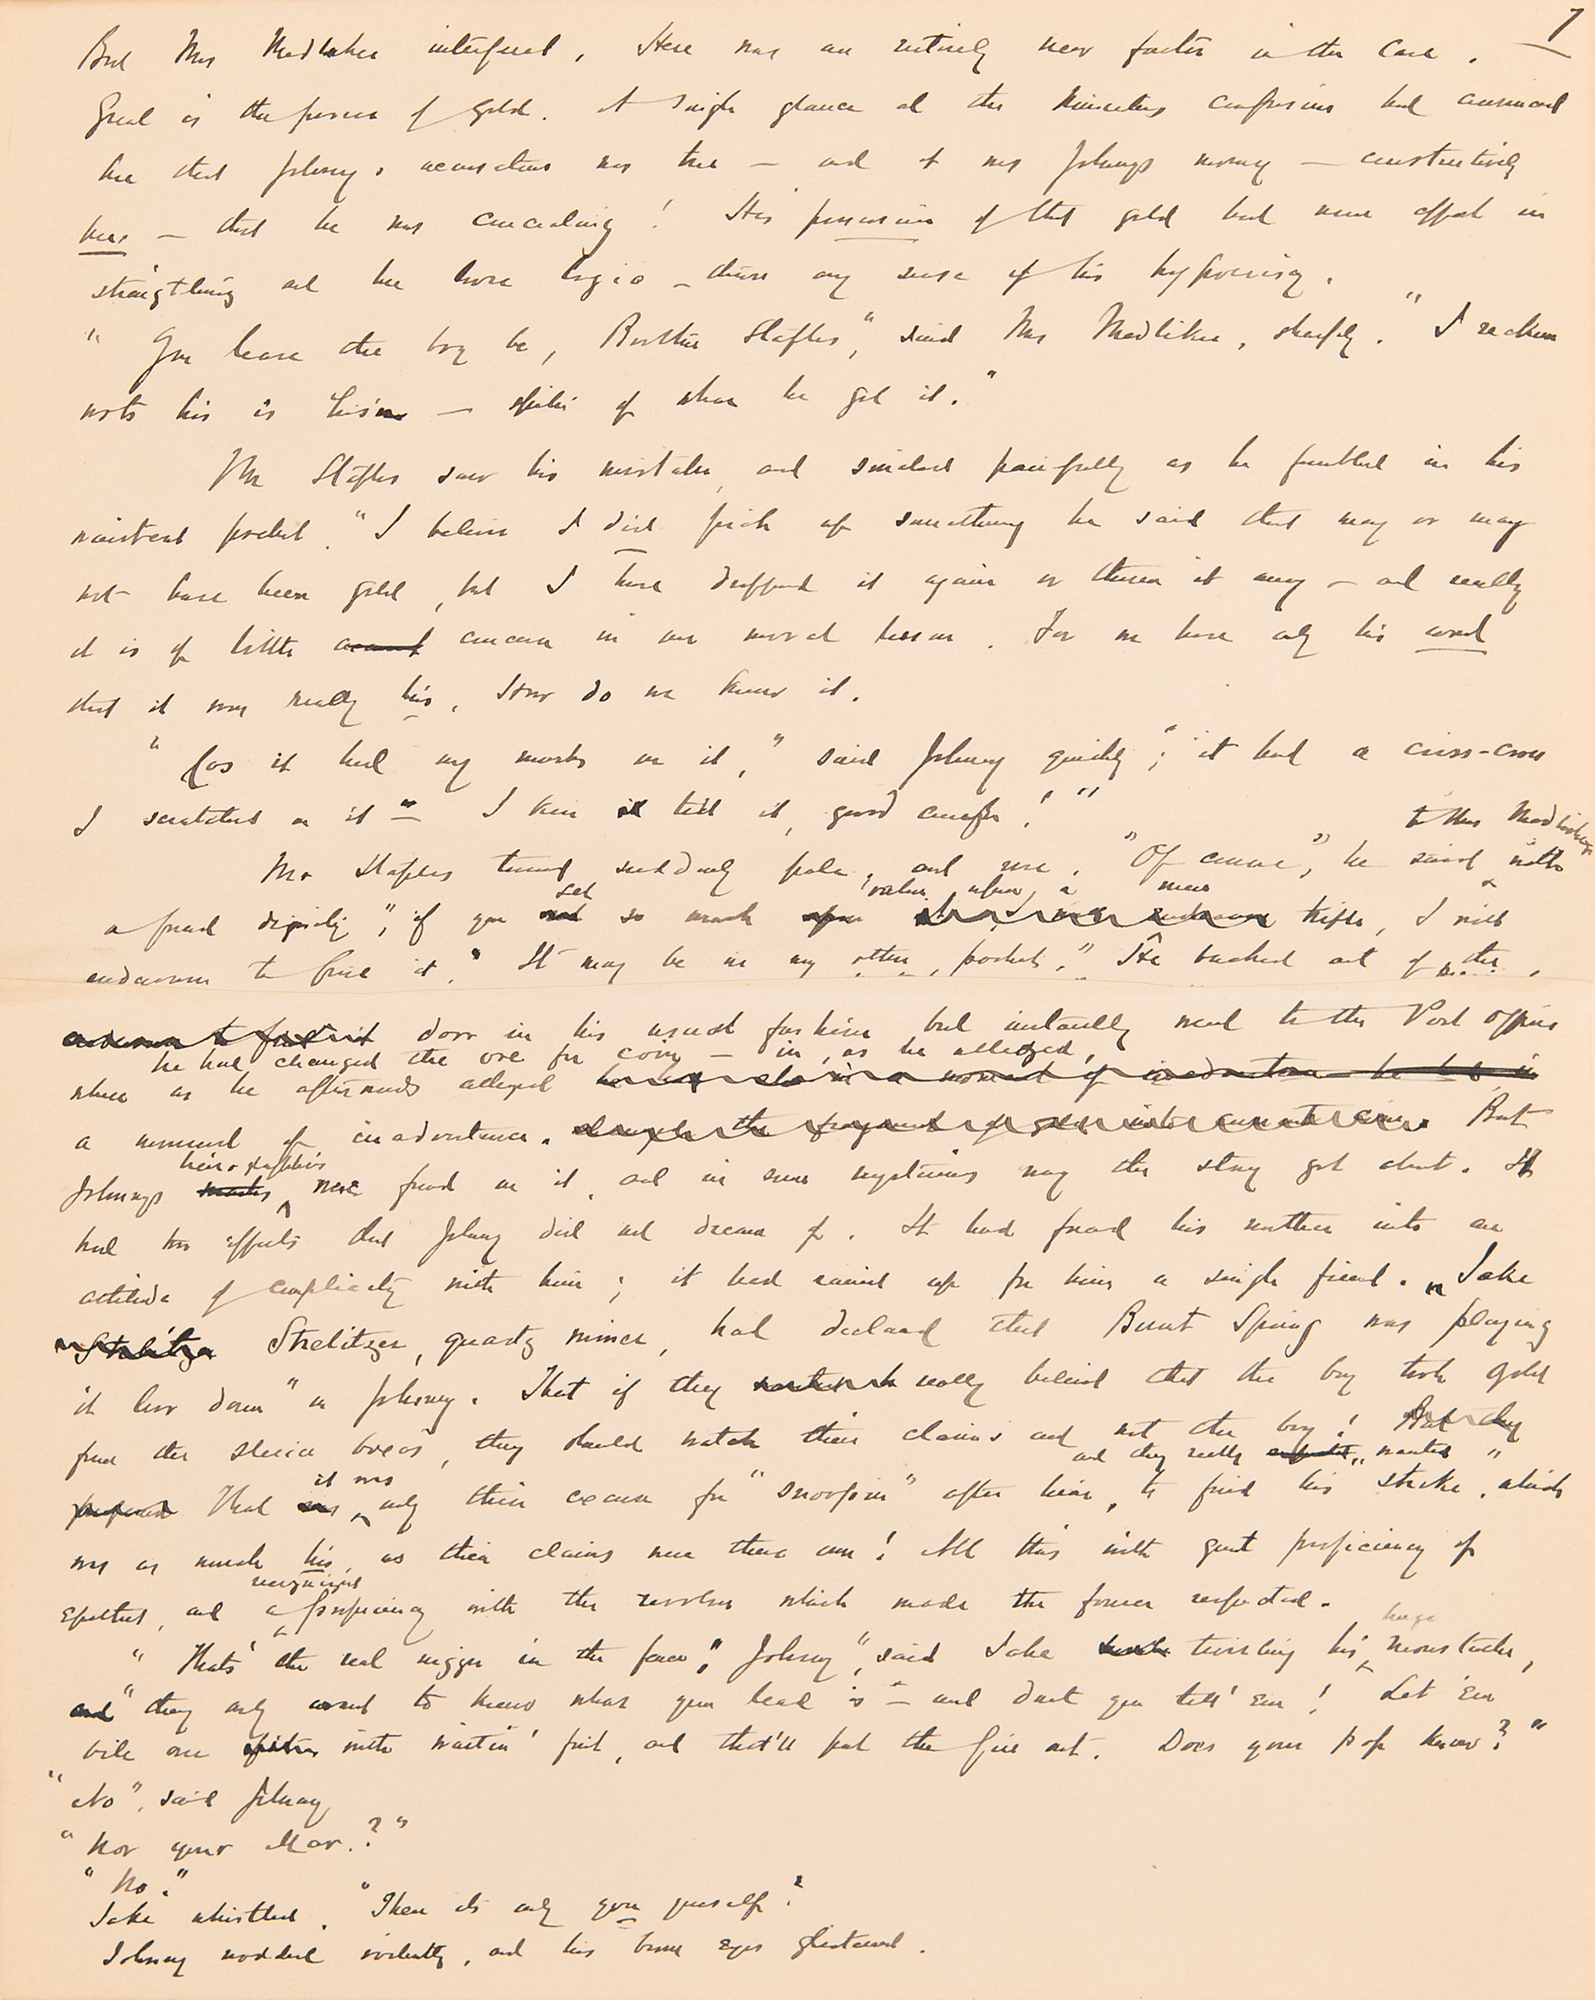 7
But Mrs Medliker interfered. Here was an entirely new factor in the case.
Great is the power of gold. A single glance at the minister's confusion had convinced
her that Johnny's accusation was true — and it was Johnny's money — constructively
hers — that he was concealing! His possession of that gold had more effect in
straigthing out her loose logic — than any sense of his hypocrisy.
"You leave the boy be, Brother Staples," said Mrs Medliker, sharply. "I reckon
wots his is hisn — spite of whar he got it."
Mr Staples saw his mistake, and smiled painfully as he fumbled in his
waistcoat pocket. "I believe I did pick up something he said that may or may
not have been gold, but I have dropped it again or thrown it away — and really
it is of little account concern in our moral lesson. For we have only his word
that it was really his. How do we know it.
"Cos it hed my marks on it," said Johnny quickly; "it had a criss-cross
I scratched on it — I kin tell it, good enuff!"
to Mrs Medliker
Mr Staples turned suddenly pale, and rose. "Of course," he said with
set value upon a mere
a forced dignity, "if you so much upon trifle, I will
endeavour to find it." It may be in my other pocket." He backed out of the
endeavour to find it door in his usual fashion but instantly went to the Post Office
he had changed the ore for coin — in, as he alledged,
where as he afterwards alleged he in a moment of inadvertence he had in
a moment of inadvertence. the fragment of gold into But
hieroglyphics
Johnnys marks were found on it, and in some mysterious way the story got about. It
had two effects that Johnny did not dream of. It had forced his mother into an
attitude of complicity with him; it had raised up for him a single friend. Jake
Strelitzer Strelitzer, quartz miner, had declared that Burnt Spring was "playing
it low down" on Johnny. That if they really believed that the boy took gold
from the sluice boxes, they should watch their claims and not the boy! But they
and they really wanted
it was
That only their excuse for "snoopin" after him, to find his "strike", which
was as much his, as their claims were their own! All this with great proficiency of
recognized
epithet, and a proficiency with the revolver which made the former respected.
huge
"Thats' the real nigger in the fence, Johnny", said Jake twirling his moustache,
and "they only want to know whar your lead is — and dont you tell 'em! Let 'em
bile over with waitin' first, and that'll put the fire out. Does your pop know?"
"No", said Johnny
"Nor your Mar.?"
"No."
Jake whistled. "Then its only you yourself?
Johnny nodded violently, and his brown eyes glistened.